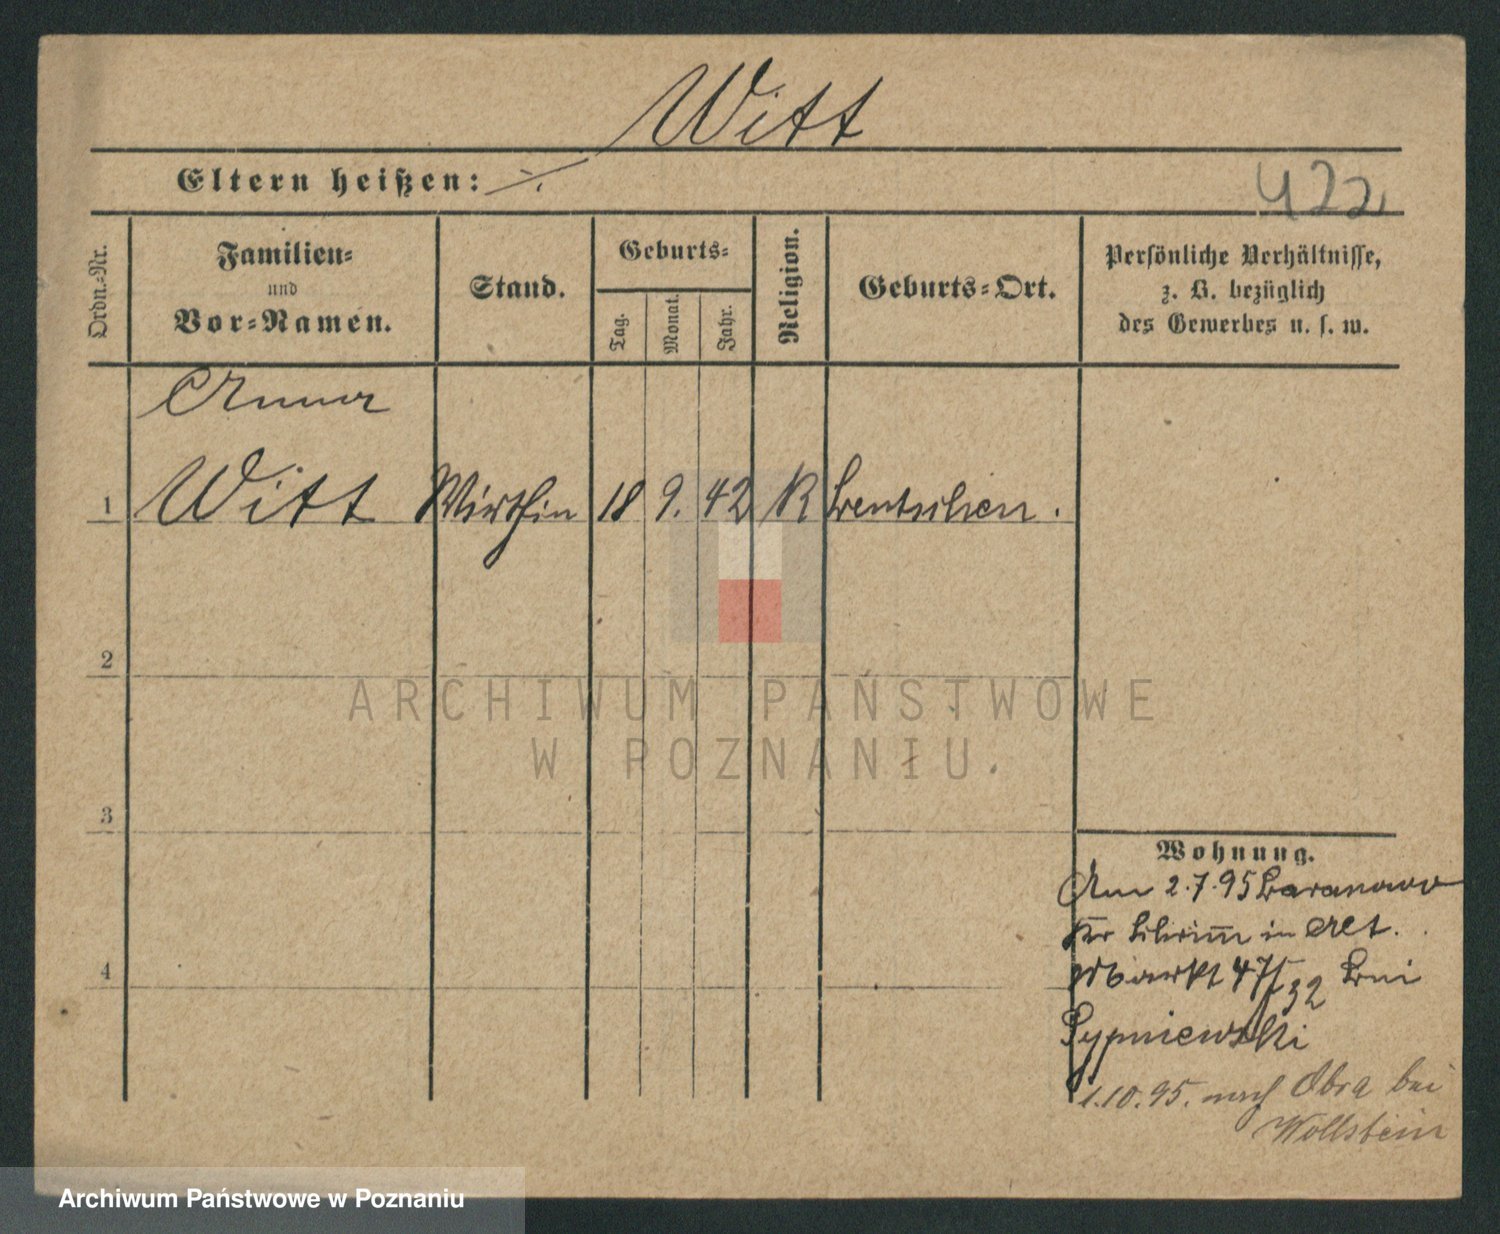 Witt
Eltern heißen: ./.
422
Ordn.-Nr.
Familien-
und
Vor-Namen.
Stand.
Geburts-
Tag.
Monat.
Jahr.
Religion.
Geburts-Ort.
Persönliche Verhältnisse,
z. B. bezüglich
des Gewerbes u. s. w.
Anna
1 Witt Wirthin 18 9. 42 K Bentschen.
2
ARCHIWUM PAŃSTWOWE
W POZNANIU
3
4
Wohnung.
Am 2.7.95 Baranowo
Kr Schrim̅ in Alt.
Markt 47/32 bei
Sypniewski
1.10.95. nach Obra bei
Wollstein
Archiwum Państwowe w Poznaniu